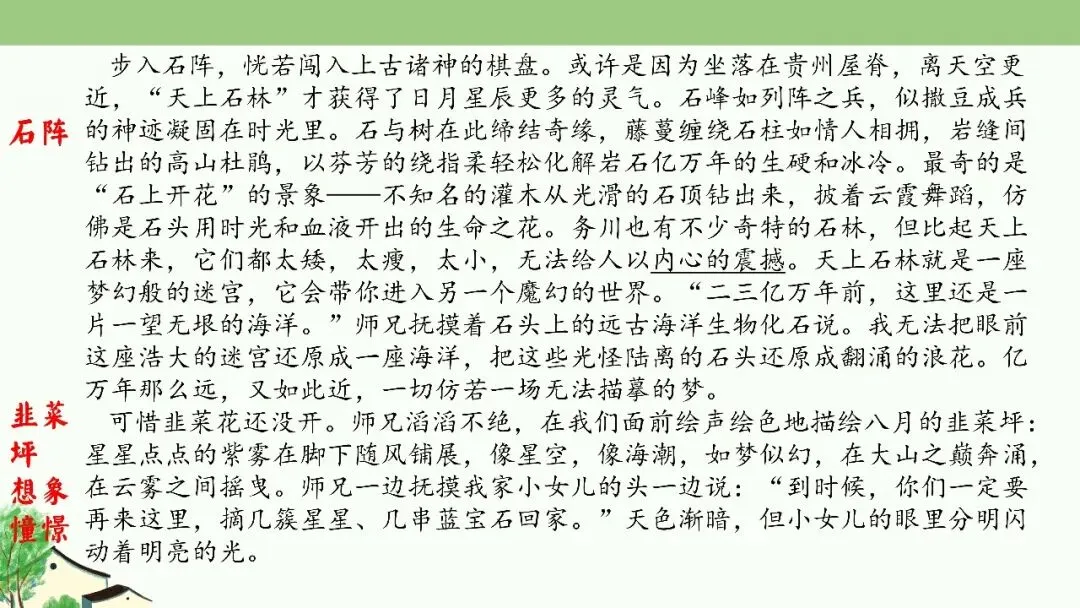 步入石阵，恍若闯入上古诸神的棋盘。或许是因为坐落在贵州屋脊，离天空更
近，“天上石林”才获得了日月星辰更多的灵气。石峰如列阵之兵，似撒豆成兵
石阵
的神迹凝固在时光里。石与树在此缔结奇缘，藤蔓缠绕石柱如情人相拥，岩缝间
钻出的高山杜鹃，以芬芳的绕指柔轻松化解岩石亿万年的生硬和冰冷。最奇的是
“石上开花”的景象——不知名的灌木从光滑的石顶钻出来，披着云霞舞蹈，仿
佛是石头用时光和血液开出的生命之花。务川也有不少奇特的石林，但比起天上
石林来，它们都太矮，太瘦，太小，无法给人以内心的震撼。天上石林就是一座
梦幻般的迷宫，它会带你进入另一个魔幻的世界。“二三亿万年前，这里还是一
片一望无垠的海洋。”师兄抚摸着石头上的远古海洋生物化石说。我无法把眼前
这座浩大的迷宫还原成一座海洋，把这些光怪陆离的石头还原成翻涌的浪花。亿
万年那么远，又如此近，一切仿若一场无法描摹的梦。
韭菜
坪
想象
憧憬
可惜韭菜花还没开。师兄滔滔不绝，在我们面前绘声绘色地描绘八月的韭菜坪：
星星点点的紫雾在脚下随风铺展，像星空，像海潮，如梦似幻，在大山之巅奔涌，
在云雾之间摇曳。师兄一边抚摸我家小女儿的头一边说：“到时候，你们一定要
再来这里，摘几簇星星、几串蓝宝石回家。”天色渐暗，但小女儿的眼里分明闪
动着明亮的光。